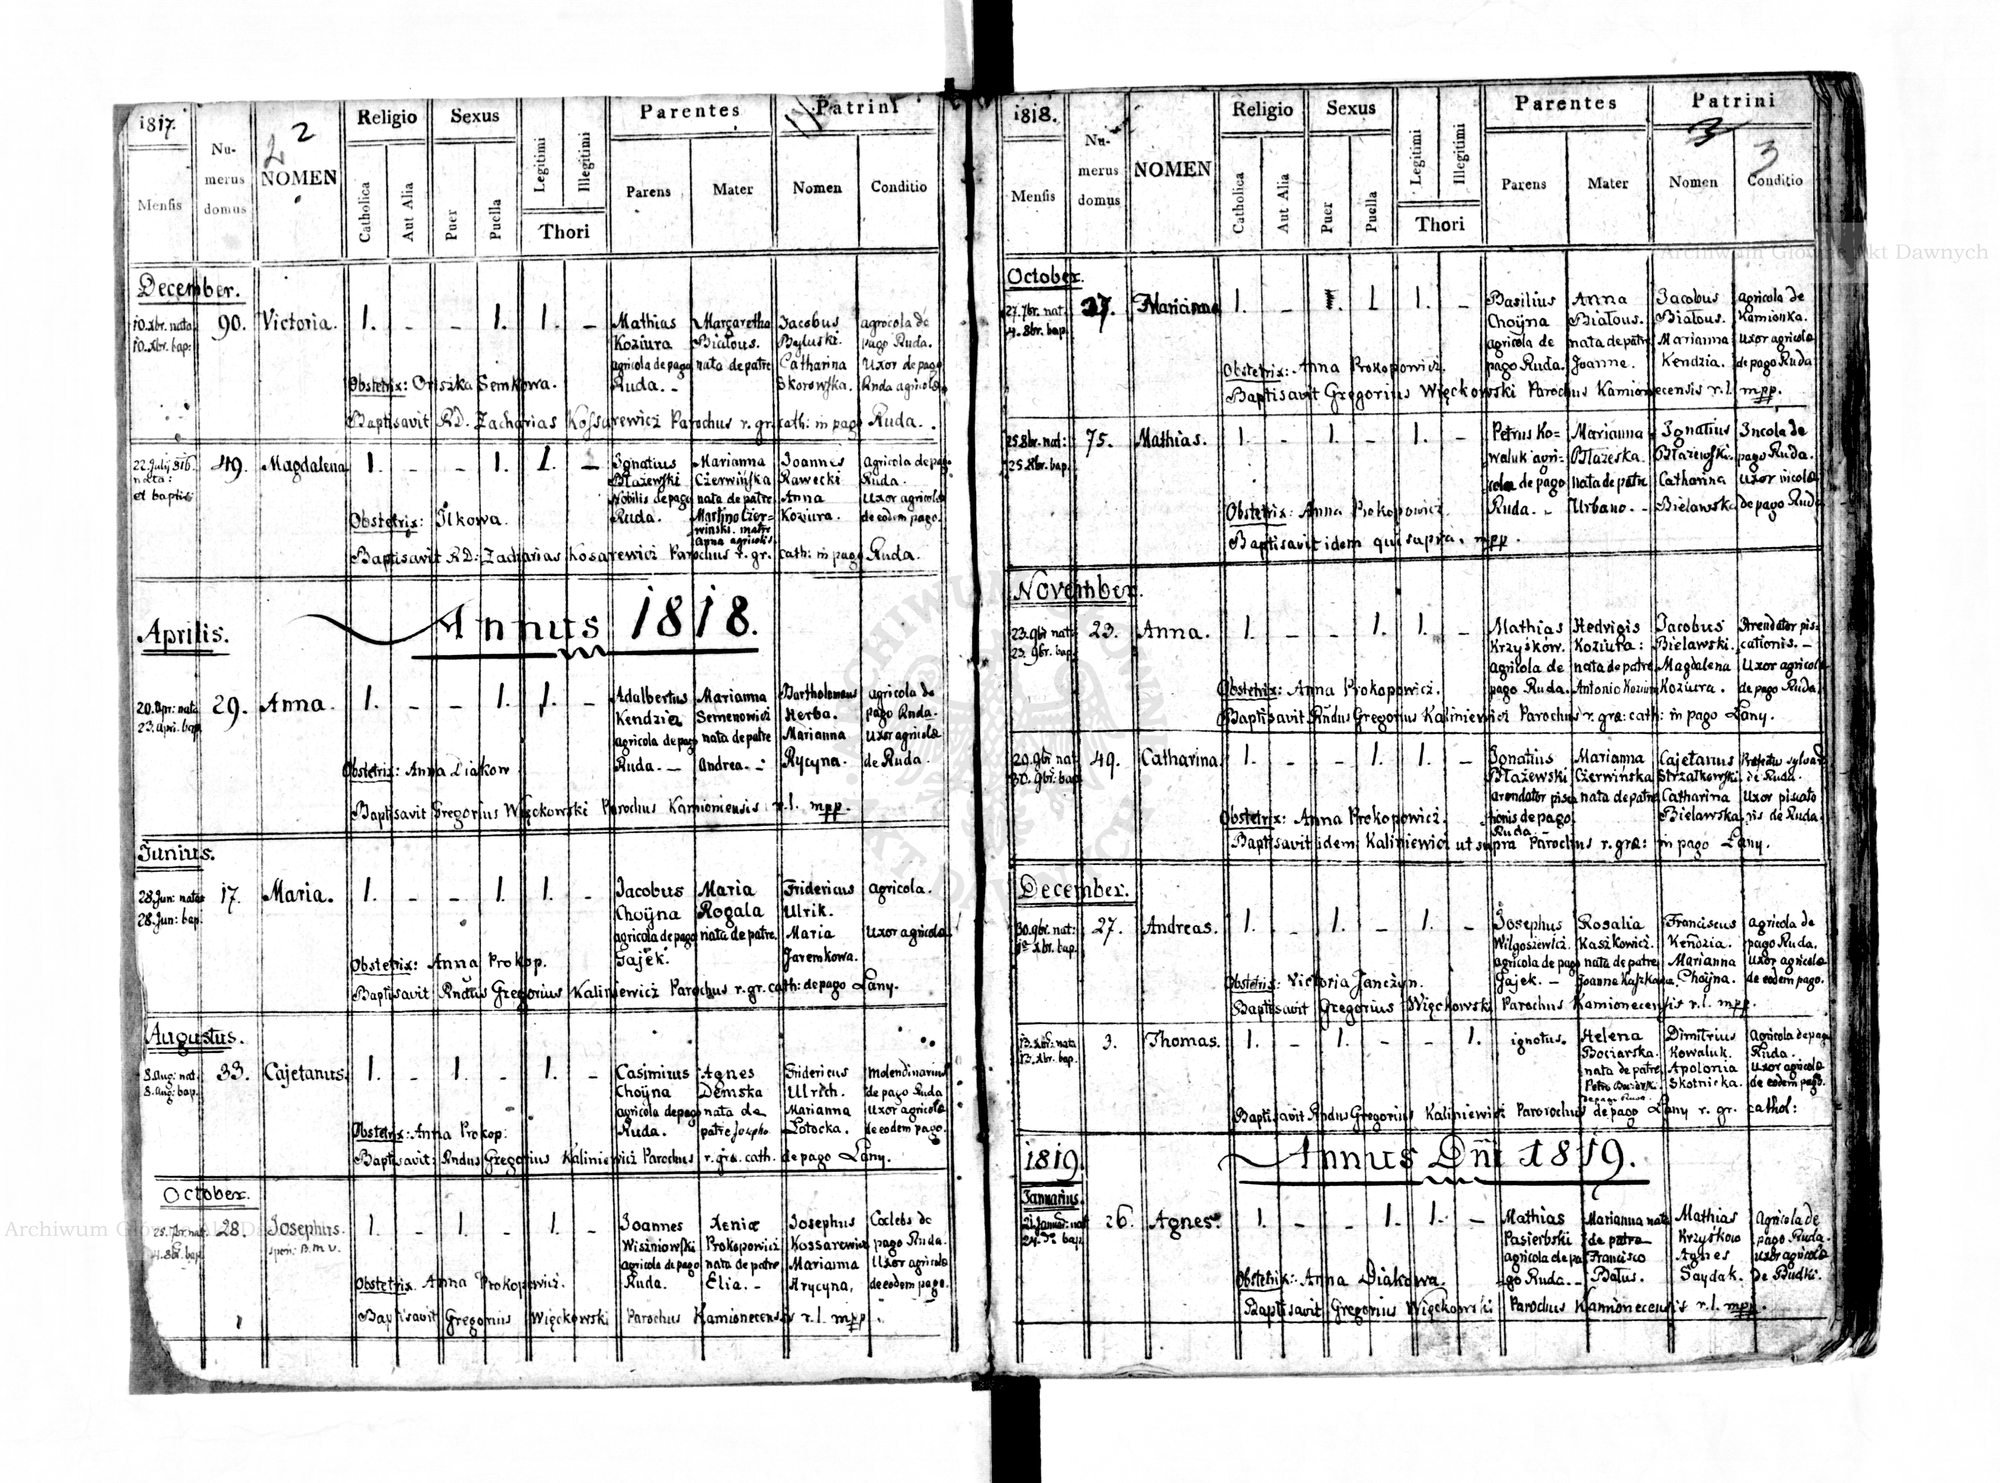 1817.
Mensis
Numerus domus
2
NOMEN
Religio
Catholica
Aut Alia
Sexus
Puer
Puella
Legitimi
Illegitimi
Thori
Parentes
Parens
Mater
Patrini
Nomen
Conditio
December.
10. Xbr. nata
10. Xbr. bap:
90.
Victoria.
1. - - 1. 1. -
Mathias
Koziura
agricola de pago
Ruda. -
Margaretha
Białous.
nata de patre
Jacobus
Catharina
Skorowska.
agrocola de
pago Ruda.
Uxor de pago
Ruda agricolæ
Obstetrix: Semkowa.
Baptisavit RD. Zacharias Kossarewicz Parochus r. gr. cath: in pago Ruda.
22. Julij 816.
nata:
et baptis:
49.
Magdalena
1. - - 1. 1. -
Ignatius
Błażewski
Nobilis de pago
Ruda.
Marianna
Czerwińska
nata de patre
Martino Czer-
winski. matre
Anna agricolis.
Joannes
Rawecki
Anna
Koziura.
Agricola de pago
Ruda.
Uxor agricolæ
de eodem pago.
Obstetrix: Ilkowa.
Baptisavit RD: Zacharias Kosarewicz Parochus r. gr. cath: in pago Ruda.
Annus 1818.
Aprilis.
20. Apr: nata
23. Apri. bap.
29.
Anna.
1. - - 1. 1. -
Adalbertus
Kendzia
agricola de pago
Ruda. -
Marianna
Semenowicz
nata de patre
Andrea. -
Bartholomeus
Herba.
Marianna
Rycyna.
agricola de
pago Ruda.
Uxor agricolæ
de Ruda.
Obstetrix: Anna Diakow
Baptisavit Gregorius Więckowski Parochus Kamionensis r. l. mpp.
Junius.
28. Jun: nata
28. Jun: bap.
17.
Maria.
1. - - 1. 1. -
Jacobus
Choÿna
agricola de pago
Gajek.
Maria
Rogala
nata de patre.
Fridericus
Ulrik.
Maria
Jaremkowa.
Agricola.
Uxor agricolæ
Obstetrix: Anna Prokop.
Baptisavit Rndus Gregorius Kaliniewicz Parochus r. gr. cath: de pago Łany.
Augustus.
8. Aug: nat.
8. Aug: bap.
33.
Cajetanus.
1. - 1. - 1. -
Casimirus
Choÿna
agricola de pago
Ruda.
Agnes
Demska
nata de
patre Josepho
Fridericus
Ulrich.
Marianna
Potocka.
Molendinarius
de pago Ruda
Uxor agricolæ
de eodem pago.
Obstetrix: Anna Prokop:
Baptisavit: Rndus Gregorius Kaliniewicz Parochus r. græ. cath. de pago Łany.
October.
25. 7br. nat.
4. 8br. bap.
28.
Josephus.
1. - 1. - 1. -
Joannes
Wiszniowski
agricola de pago
Ruda.
Xeniæ
Prokopowicz
nata de patre
Elia. -
Josephus
Kossarewicz
Marianna
Cœlebs de
pago Ruda.
Uxor agricolæ
de eodem pago.
Obstetrix. Anna Prokopowicz.
Baptisavit Gregorius Więckowski Parochus Kamionecensis r. l. mpp.
1818.
Mensis
Numerus domus
NOMEN
Religio
Catholica
Aut Alia
Sexus
Puer
Puella
Legitimi
Illegitimi
Thori
Parentes
Parens
Mater
Patrini
3
3
Nomen
Conditio
October.
27. 7br. nat.
4. 8br. bap.
37.
Marianna
1. - 1 1. -
Basilius
Choÿna
agricola de
pago Ruda.
Anna
Białous.
nata de patre
Joanne.
Jacobus
Białous.
Marianna
Kendzia.
agricola de
Kamionka.
Uxor agricolæ
de pago Ruda
Obstetrix: Anna Prokopowicz.
Baptisavit Gregorius Więckowski Parochus Kamionecensis r. l. mpp.
25. 8br. nat:
25. Xbr. bap.
75.
Mathias.
1. - 1. - 1. -
Petrus Ko-
waluk agri-
cola de pago
Ruda. -
Marianna
Błażeska.
nata de patre
Urbano. -
Ignatius
Błażewski.
Catharina
Bielawska
Incola de
pago Ruda.
Uxor incolæ
de pago Ruda
Obstetrix: Anna Prokopowicz.
Baptisavit idem qui supra. mpp.
November.
23. 9br. nat:
23. 9br. bap.
23.
Anna.
1. - - 1. 1. -
Mathias
Krzyśkow.
agricola de
pago Ruda.
Hedvigis
Koziura:
nata de patre
Antonio Koziura
Jacobus
Bielawski.
Magdalena
Koziura.
Arendator pis-
cationis. -
Uxor agricolæ
de pago Ruda.
Obstetrix: Anna Prokopowicz.
Baptisavit Rndus Gregorius Kaliniewicz Parochus r. græ: cath: in pago Łany.
29. 9bri. nat.
30. 9bri. bap.
49.
Catharina.
1. - - 1. 1. -
Ignatius
Błażewski
arendator pisca-
tionis de pago
Ruda. -
Marianna
Czerwińska
nata de patre
Cajetanus
Strzałkowski
Catharina
Bielawska
Præfectus sylvar.
de Ruda.
Uxor piscato
ris de Ruda.
Obstetrix: Anna Prokopowicz.
Baptisavit idem Kaliniewicz ut supra Parochus r. græ: in pago Łany.
December.
30. 9br. nat:
1a Xbr. bap.
27.
Andreas.
1. - 1. - 1. -
Josephus
Wilgoszewicz.
agricola de pago
Gajek. -
Rosalia
Kaszkowicz.
nata de patre
Joanne Kaszkow.
Franciscus
Kendzia.
Marianna
Choÿna.
agricola de
pago Ruda.
Uxor agricolæ
de eodem pago.
Obstetrix: Victoria Janczyn.
Baptisavit Gregorius Więckowski Parochus Kamionecensis r. l. mpp.
13. Xbr. nata
13. Xbr. bap.
3.
Thomas.
1. - 1. - - 1.
ignotus.
Helena
Bociarska.
nata de patre
Dimitrius
Kowaluk.
Apolonia
Skotnicka.
Agricola de pago
Ruda.
Uxor agricolæ
de eodem pago.
Baptisavit Rndus Gregorius Kaliniewicz Parorochus de pago Łany r. gr. cathol:
1819.
Annus Dni 1819.
Januarius.
21. Januar: nat
24. do bap.
26.
Agnes.
1. - - 1. 1. -
Mathias
Pasierbski
agricola de pa
go Ruda. -
Marianna nata
de patre
Francisco
Bałus.
Mathias
Krzyśkow
Agnes
Saydak.
Agricola de
pago Ruda.
Uxor agricolæ
de Budki.
Obstetrix: Anna Diakowa.
Baptisavit Gregorius Więckowski Parochus Kamionecensis r. l. mpp.
Archiwum Główne Akt Dawnych